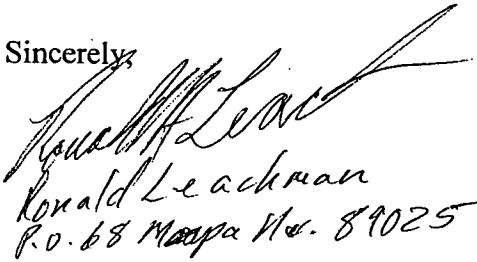 Sincerely,
Ronald H Leach
Ronald Leachman
P.O. 68 Moapa Nv. 89025